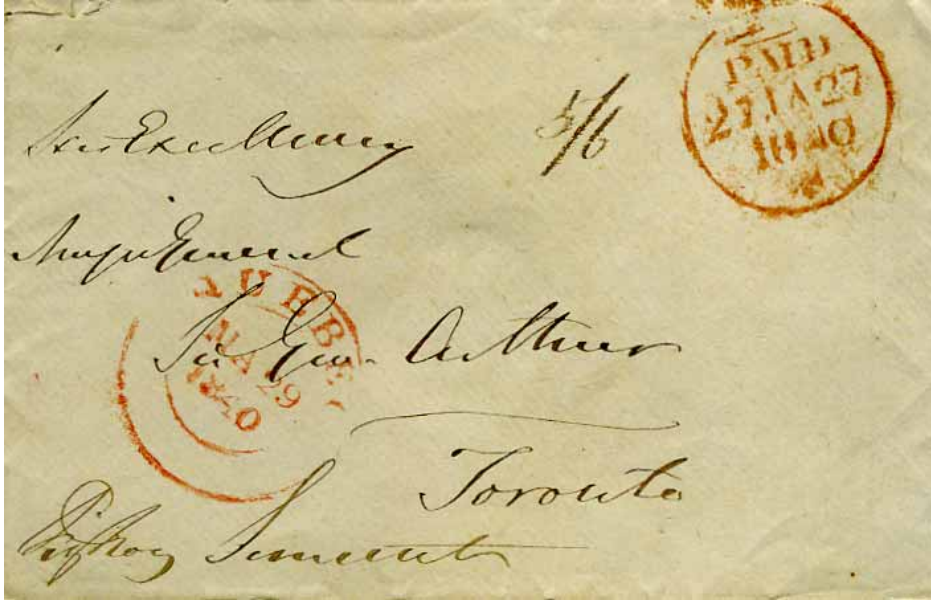 His Excellency
5/6
PAID
27 JA 27
1840
Major General
QUEBEC
MA 29
1840
Sir Geo. Arthur
Toronto